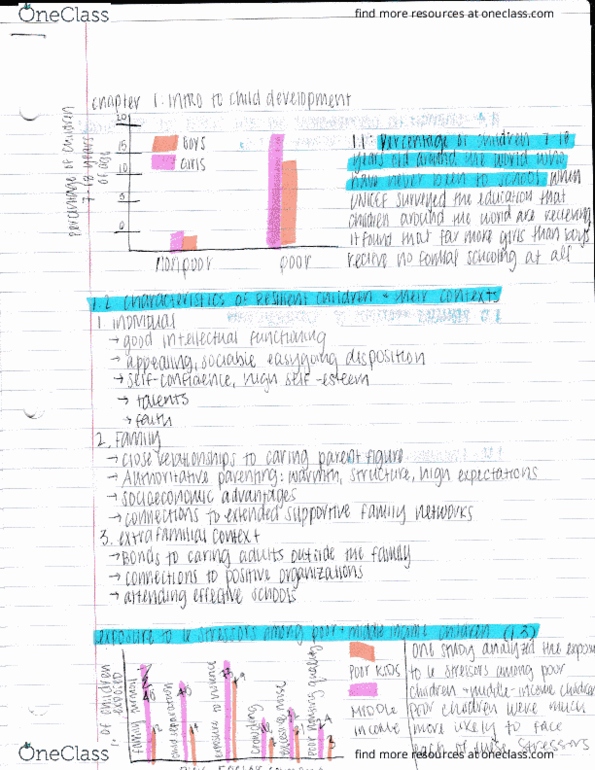 OneClass
find more resources at oneclass.com
chapter 1: Intro to child development
percentage of children
7-18 years
of age
20
15
10
5
0
Boys
Girls
Nonpoor
poor
1.1 Percentage of children 7-18
years old around the world who
have never been to school when
UNICEF surveyed the education that
children around the world are recieving
it found that far more girls than boys
recieve no formal schooling at all
1.2 characteristics of resilient children + their contexts
1. individual
→ good intellectual functioning
→ appealing, sociable easygoing disposition
→ self-confidence, high self-esteem
→ talents
→ faith
2. Family
→ close relationships to caring parent figure
→ Authoritative parenting: warmth, structure, high expectations
→ socioeconomic advantages
→ connections to extended supportive family networks
3. extrafamilial context
→ Bonds to caring adults outside the family
→ connections to positive organizations
→ attending effective schools
exposure to stressors among poor + middle income children (1.3)
of children
exposed
family turmoil
child separation
exposure to violence
crowding
excessive noise
poor housing quality
POOR KIDS
MIDDLE
income
one study analyzed the exposure
to stressors among poor
children + middle-income children
Poor children were much
more likely to face
each of these stressors
OneClass
find more resources at oneclass.com